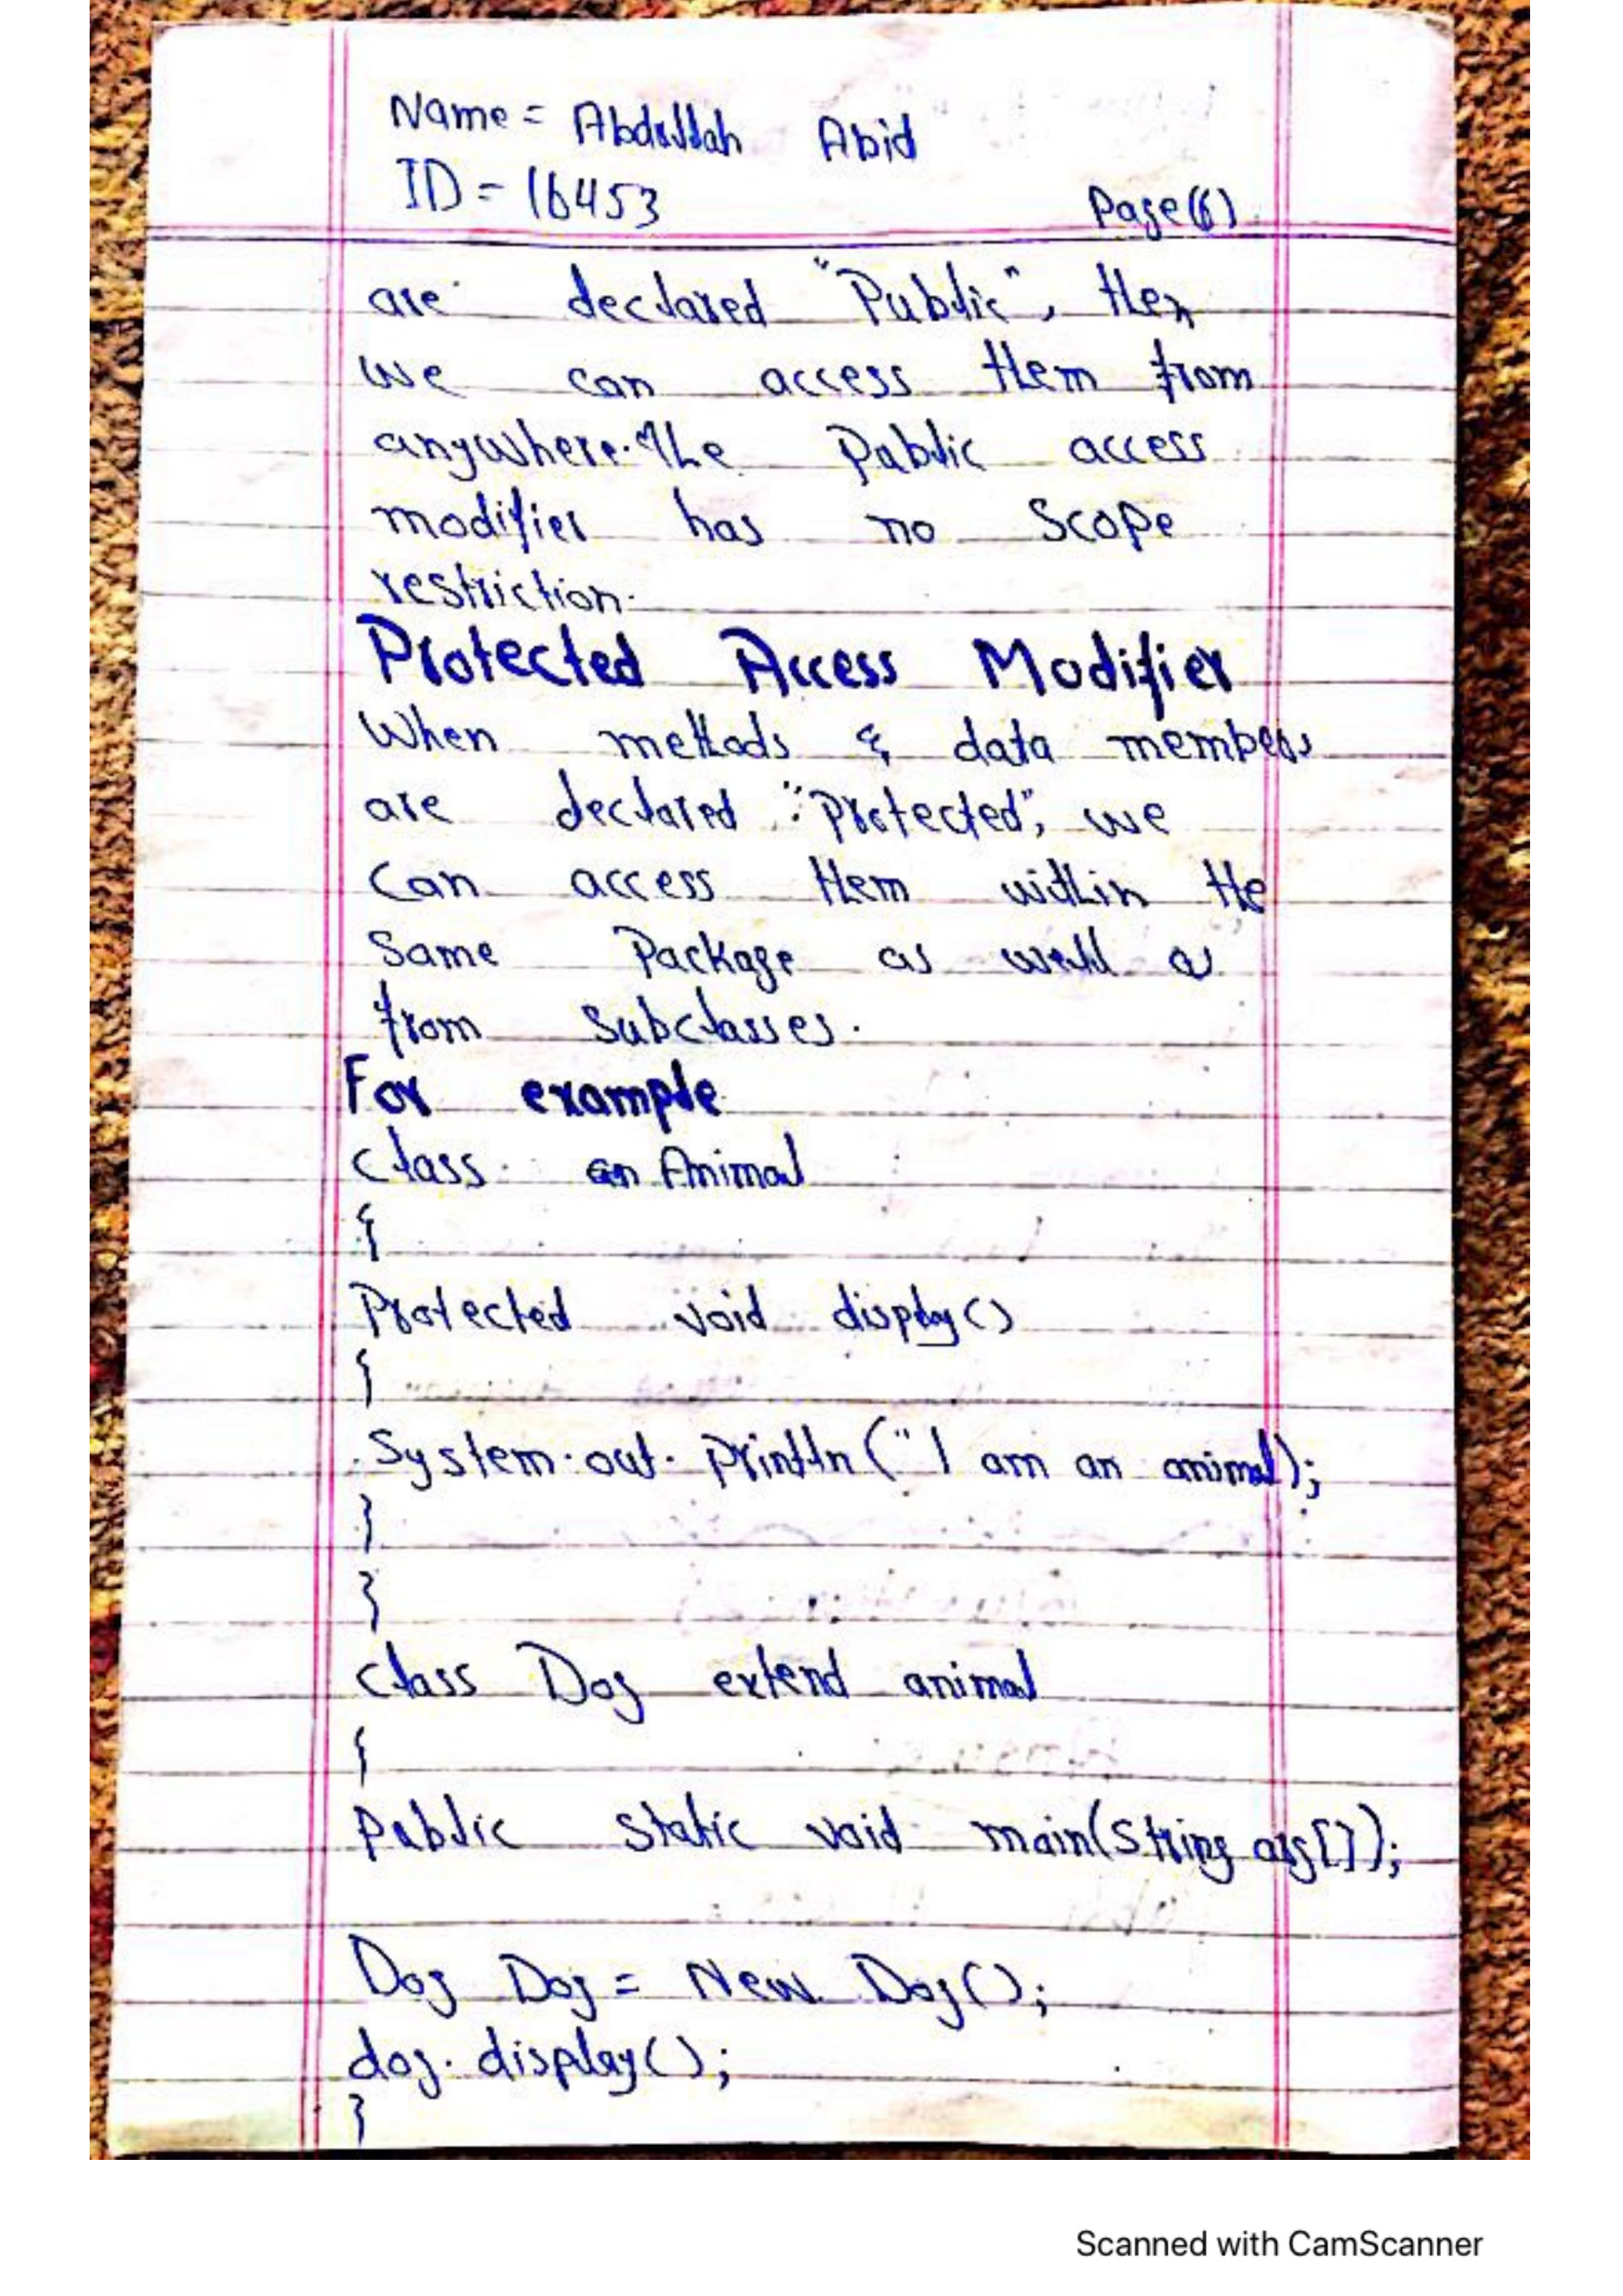 Name = Abdullah Abid
ID = 16453 Page(6)
are declared "Public", then
we can access them from
anywhere. The Public access
modifier has no Scope
restriction.
Protected Access Modifier
When methods & data members
are declared "Protected", we
Can access them within the
Same Package as well as
from Subclasses.
For example
class an Animal
{
Protected void display()
{
System.out.println("I am an animal);
}
}
class Dog extend animal
{
Public static void main(String arg[]);
Dog Dog = New Dog();
dog.display();
}
Scanned with CamScanner